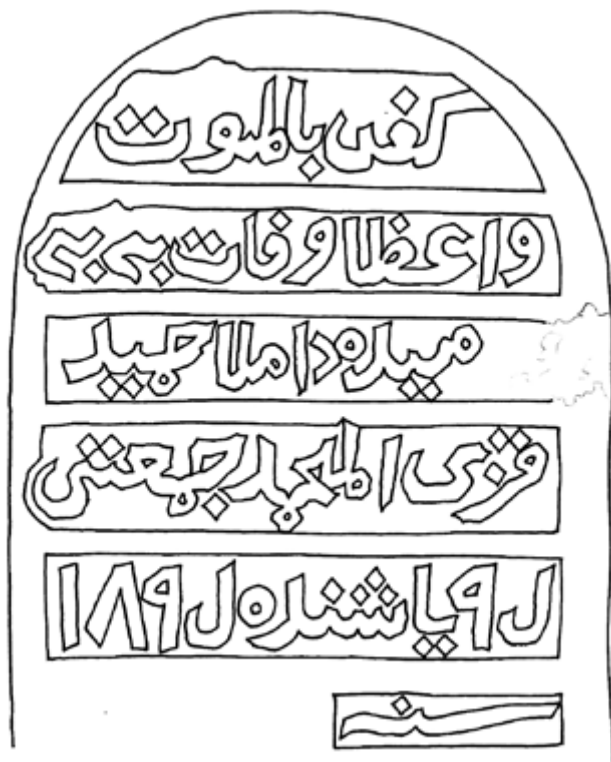 كفى بالموت
واعظا وفات به به
ميده داملا حميد
قزى
ل ٩ ياشنده ل ١٨٩
سنه